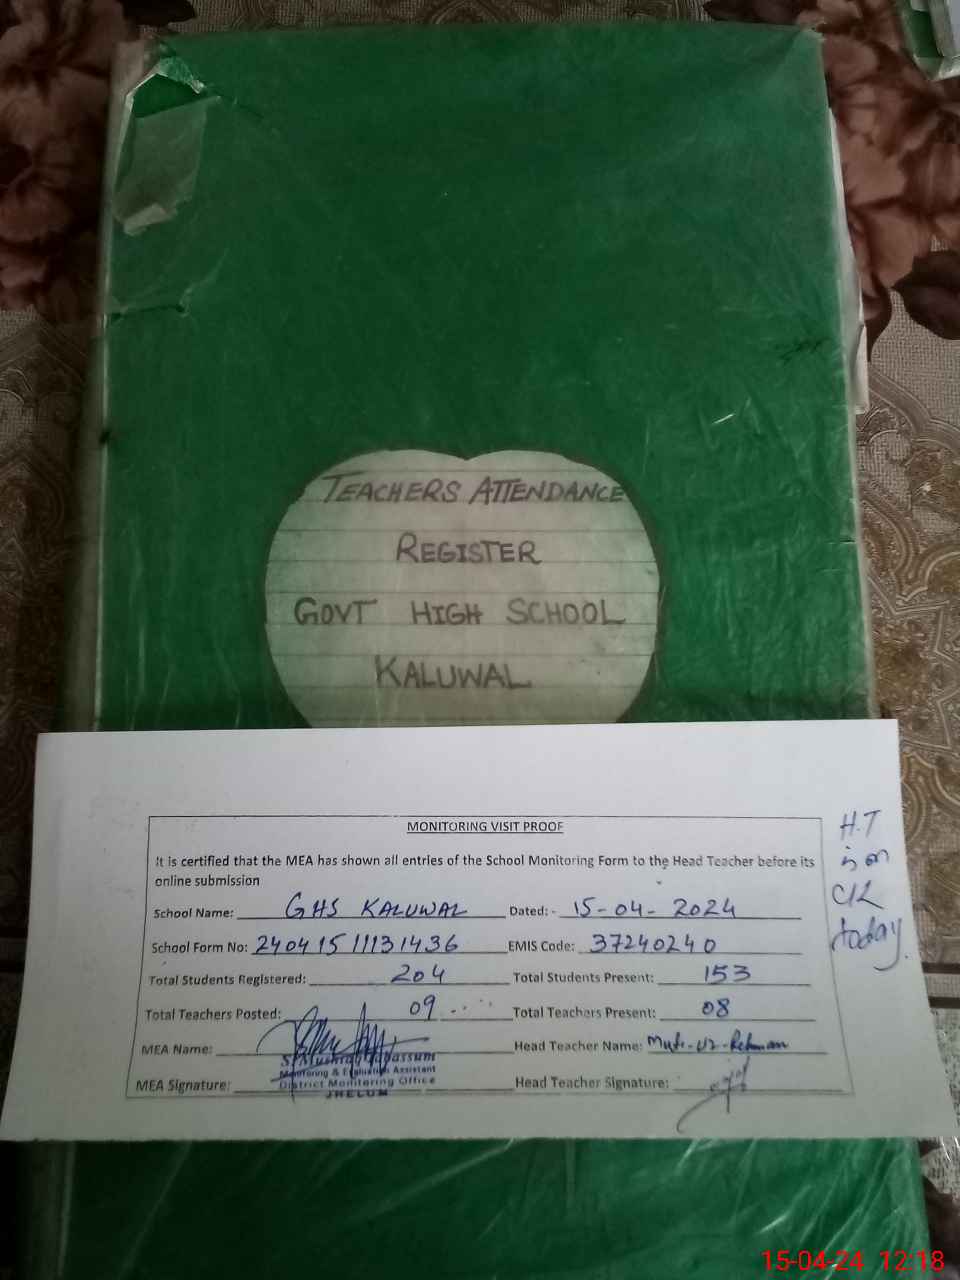 TEACHERS ATTENDANCE
REGISTER
GOVT HIGH SCHOOL
KALUWAL
MONITORING VISIT PROOF
It is certified that the MEA has shown all entries of the School Monitoring Form to the Head Teacher before its
online submission
School Name: GHS KALUWAL Dated: - 15-04-2024
School Form No: 24041511131436 EMIS Code: 37240240
Total Students Registered: 204 Total Students Present: 153
Total Teachers Posted: 09 Total Teachers Present: 08
MEA Name: Head Teacher Name: Rehman
S. Mushtaq Tabassum
Monitoring & Evaluation Assistant
MEA Signature: District Monitoring Office Head Teacher Signature:
JHELUM
H.T
is on
C/L
today.
15-04-24 12:18